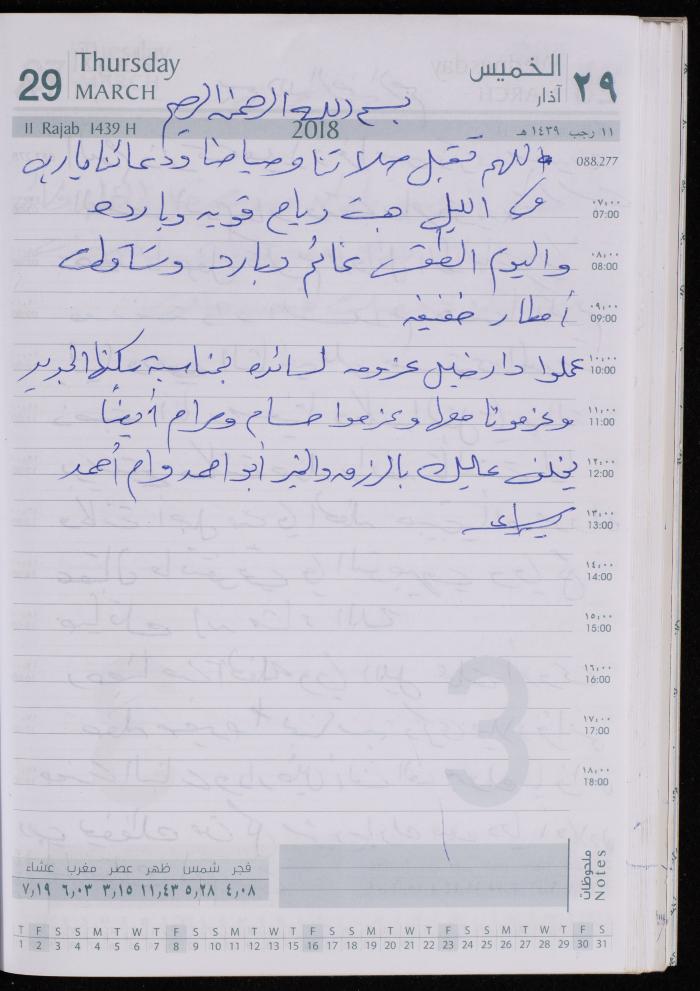 29 Thursday MARCH الخميس آذار ٢٩
بسم الله الرحمن الرحيم
11 Rajab 1439 H 2018 ١١ رجب ١٤٣٩ هـ
اللهم تقبل صلاتنا وصيامنا ودعائنا يا رب 088.277
في الليل هبت رياح قويه وبارده ٠٧:٠٠ 07:00
واليوم الطقس غائم وبارد وتساقطت ٠٨:٠٠ 08:00
أمطار خفيفه ٠٩:٠٠ 09:00
عملوا دار خليل عزومه لسائده بمناسبة سكنها الجديد ١٠:٠٠ 10:00
وعزمونا معها وعزموا حسام ومرام أيضاً ١١:٠٠ 11:00
يخلف عليك بالرزق والخير أبو احمد وام أحمد ١٢:٠٠ 12:00
١٣:٠٠ 13:00
١٤:٠٠ 14:00
١٥:٠٠ 15:00
١٦:٠٠ 16:00
١٧:٠٠ 17:00
١٨:٠٠ 18:00
3
ملحوظات Notes
فجر شمس ظهر عصر مغرب عشاء
٤,٠٨ ٥,٢٨ ١١,٤٣ ٣,١٥ ٦,٠٣ ٧,١٩
T F S S M T W T F S S M T W T F S S M T W T F S S M T W T F S
1 2 3 4 5 6 7 8 9 10 11 12 13 14 15 16 17 18 19 20 21 22 23 24 25 26 27 28 29 30 31